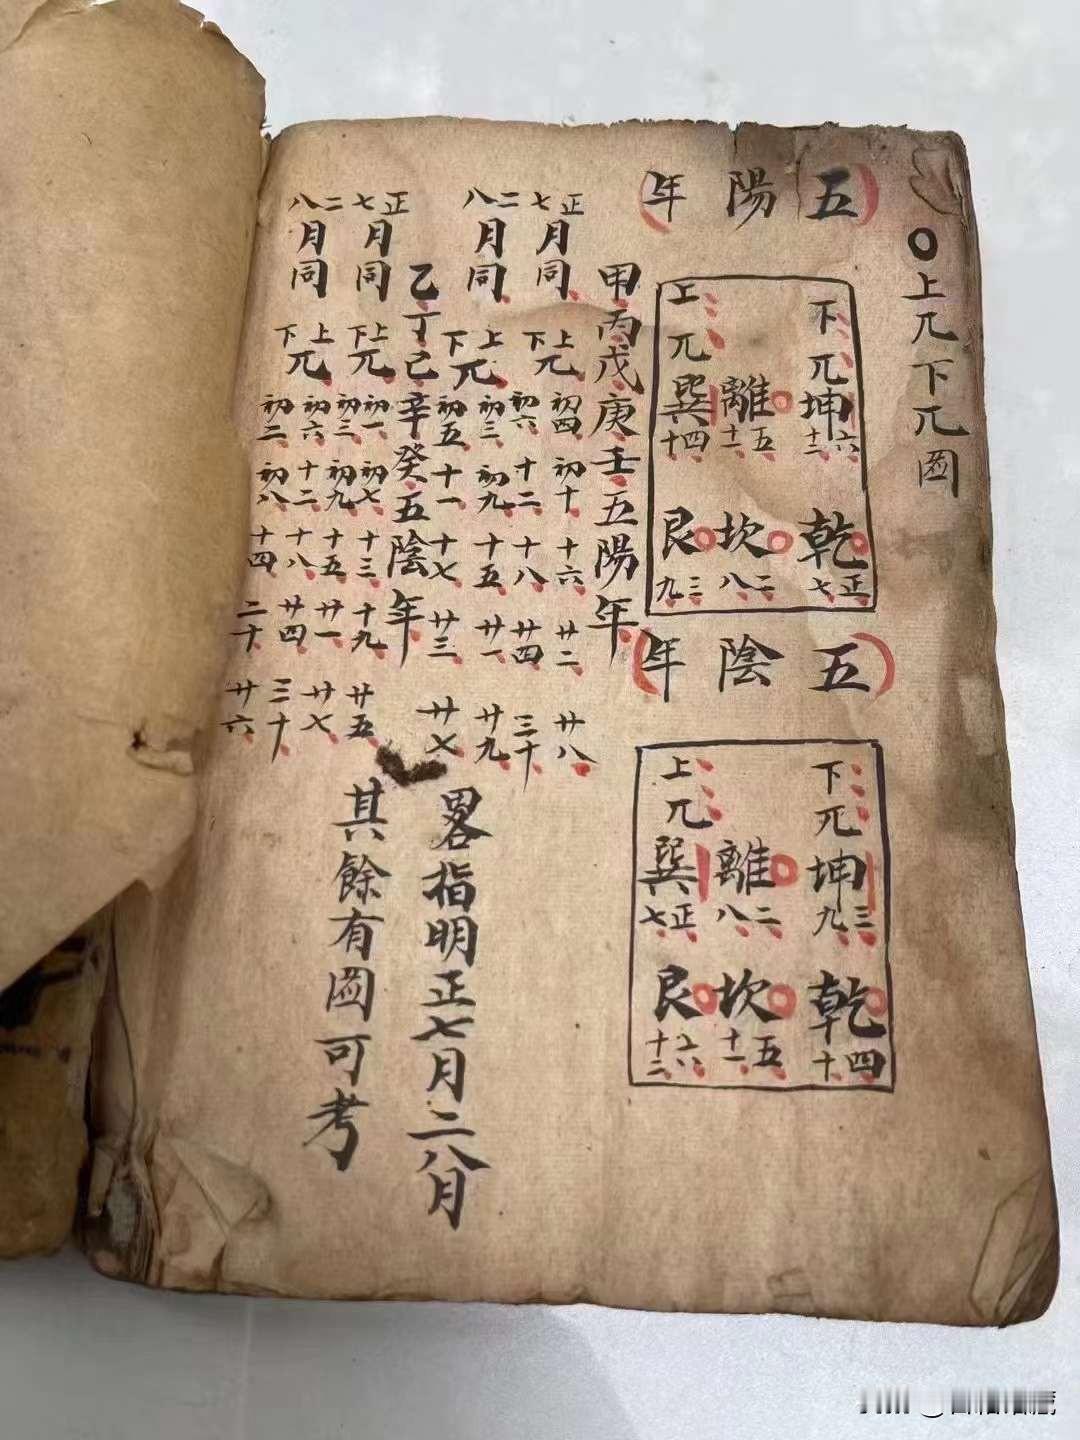 ○上兀下兀圖
五陽年
下兀坤
六 十二
離
五 十一
上兀巽
四 十
乾
正 七
坎
二 八
艮
三 九
五陰年
下兀坤
三 九
離
二 八
上兀巽
正 七
乾
四 十
坎
五 十一
艮
六 十二
甲丙戊庚壬五陽年
正七月同
上下兀
初四 初十 十六 廿二 廿八
初六 十二 十八 廿四 三十
二八月同
上下兀
初三 初九 十五 廿一 廿九
初五 十一 十七 廿三 廿七
乙丁己辛癸五陰年
正七月同
上下兀
初一 初七 十三 十九 廿五
初三 初九 十五 廿一 廿七
二八月同
上下兀
初六 十二 十八 廿四 三十
初二 初八 十四 二十 廿六
畧指明正七月二八月
其餘有圖可考